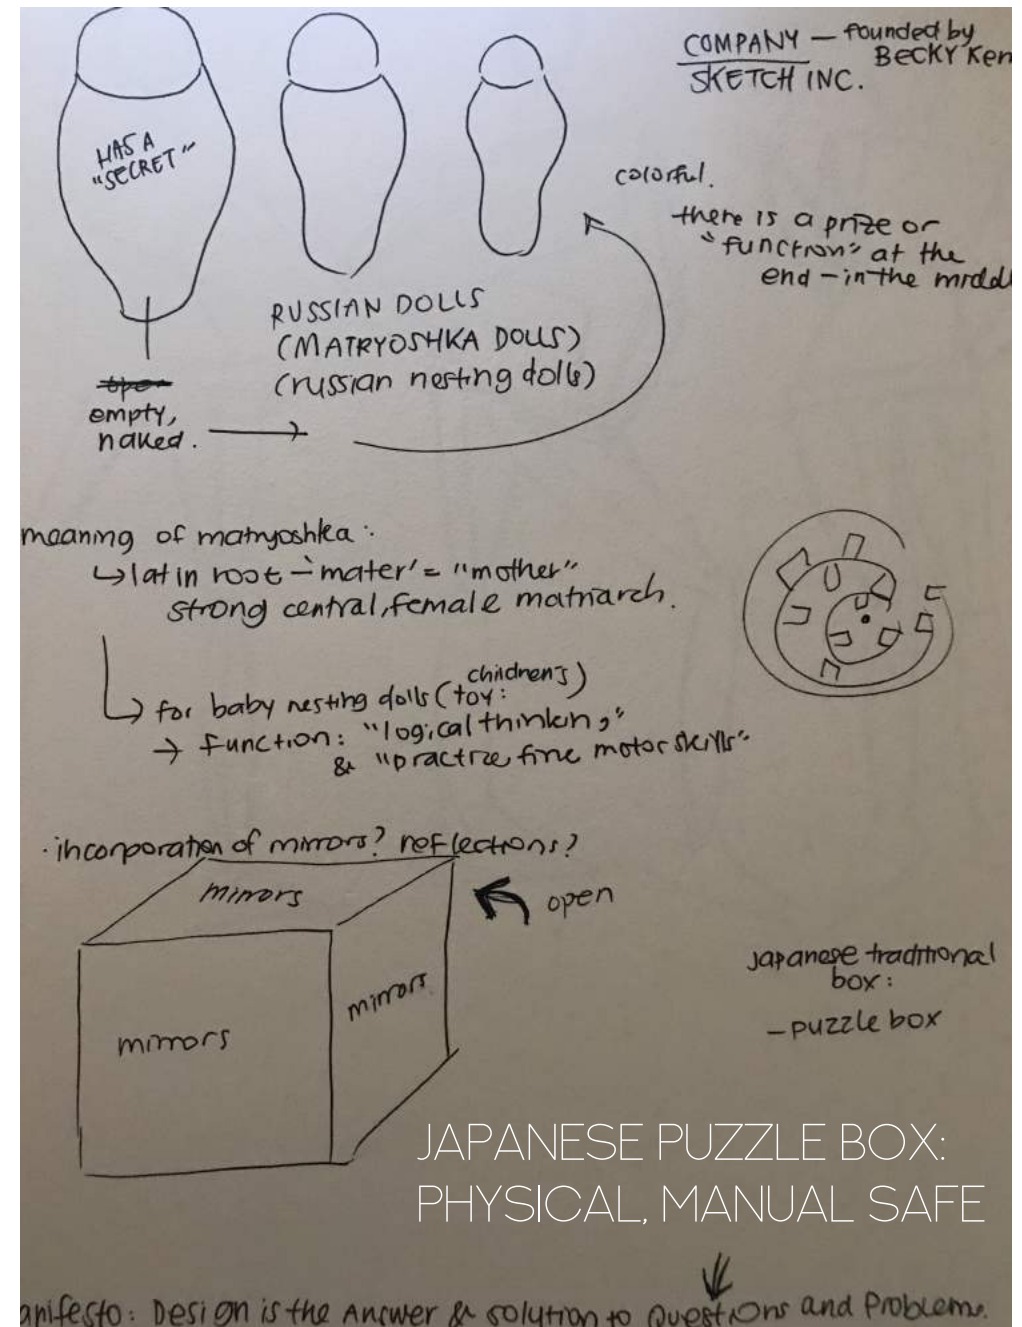 COMPANY — founded by
BECKY Ken
SKETCH INC.
HAS A
"SECRET"
colorful.
there is a prize or
"function" at the
end – in the middl
RUSSIAN DOLLS
(MATRYOSHKA DOLLS)
(russian nesting dolls)
open
empty,
naked.
meaning of matryoshka:
latin root – 'mater' = "mother"
strong central, female matriarch.
for baby nesting dolls (children's toy:)
function: "logical thinking"
& "practice fine motor skills"
· incorporation of mirrors? reflections?
mirrors
open
mirrors
mirrors
Japanese traditional
box:
– puzzle box
JAPANESE PUZZLE BOX:
PHYSICAL, MANUAL SAFE
anifesto: Design is the Answer & solution to Questions and Problems.